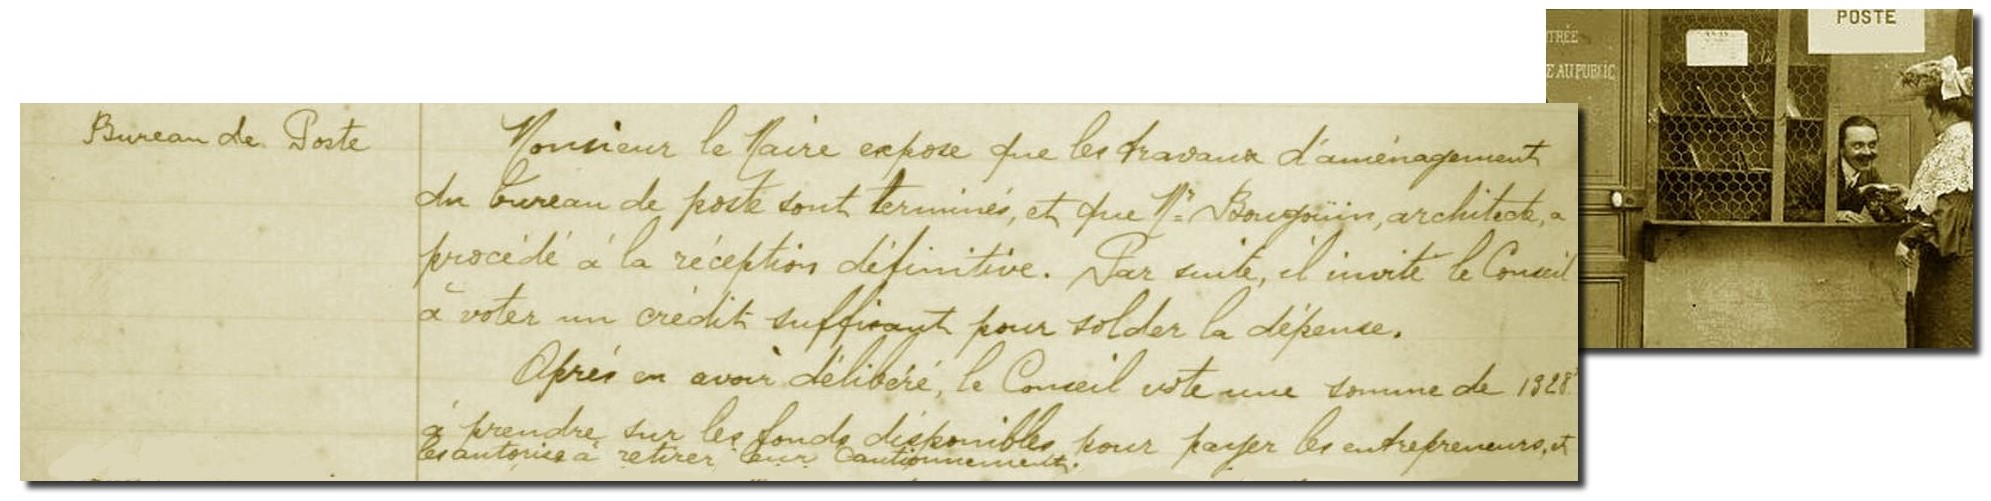 POSTE
TRÉE
E AU PUBLIC
Bureau de Poste
Monsieur le Maire expose que les travaux d'aménagement
du bureau de poste sont terminés, et que Mr Bougoüin, architecte, a
procédé à la réception définitive. Par suite, il invite le Conseil
à voter un crédit suffisant pour solder la dépense.
Après en avoir délibéré, le Conseil vote une somme de 1328f
à prendre sur les fonds disponibles pour payer les entrepreneurs, et
les autorise à retirer leur cautionnement.